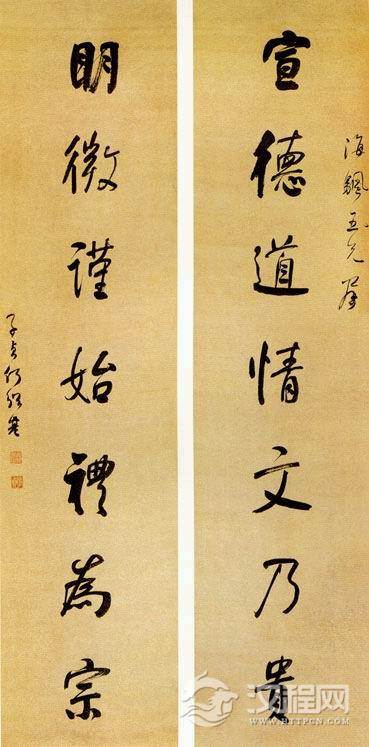 宣德道情文乃貴
明微謹始禮為宗
子貞何紹基
汉程网
WWW.HTTPCN.COM